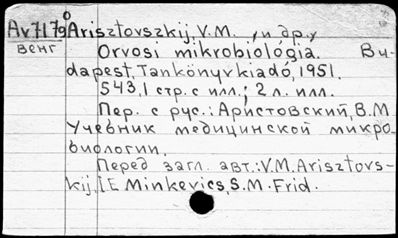 Av7179° Arisztovszkij, V.M., и др.,
венг Orvosi mikrobiológia. Bu-
dapest, Tankönyvkiadó, 1951.
543,1 стр. с илл.; 2 л. илл.
Пер. с рус.: Аристовский, В.М
Учебник медицинской микро-
биологии.
Перед загл. авт.: V.M. Arisztovs-
kij, I.E Minkevics, S.M. Frid.